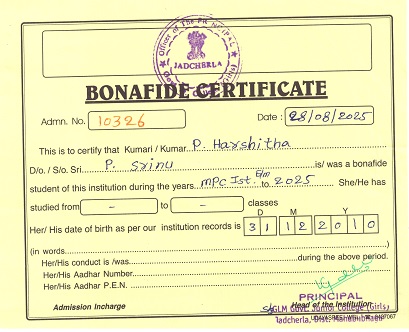 Office of The PRINCIPAL
JADCHERLA
BONAFIDE CERTIFICATE
Admn. No. 10326 Date : 28/08/2025
This is to certify that Kumari / Kumar P. Harshitha
D/o. / S/o. Sri P. Srinu is/ was a bonafide
student of this institution during the years MPC Ist E/m to 2025 She/He has
studied from - to - classes
D M Y
Her/ His date of birth as per our institution records is 31 12 2010
(in words
Her/His conduct is /was during the above period.
Her/His Aadhar Number
Her/His Aadhar P.E.N.
PRINCIPAL
Admission Incharge Head of the Institution
GLM GOVT. Junior College (Girls)
Jadcherla, Dist. Mahabubnagar